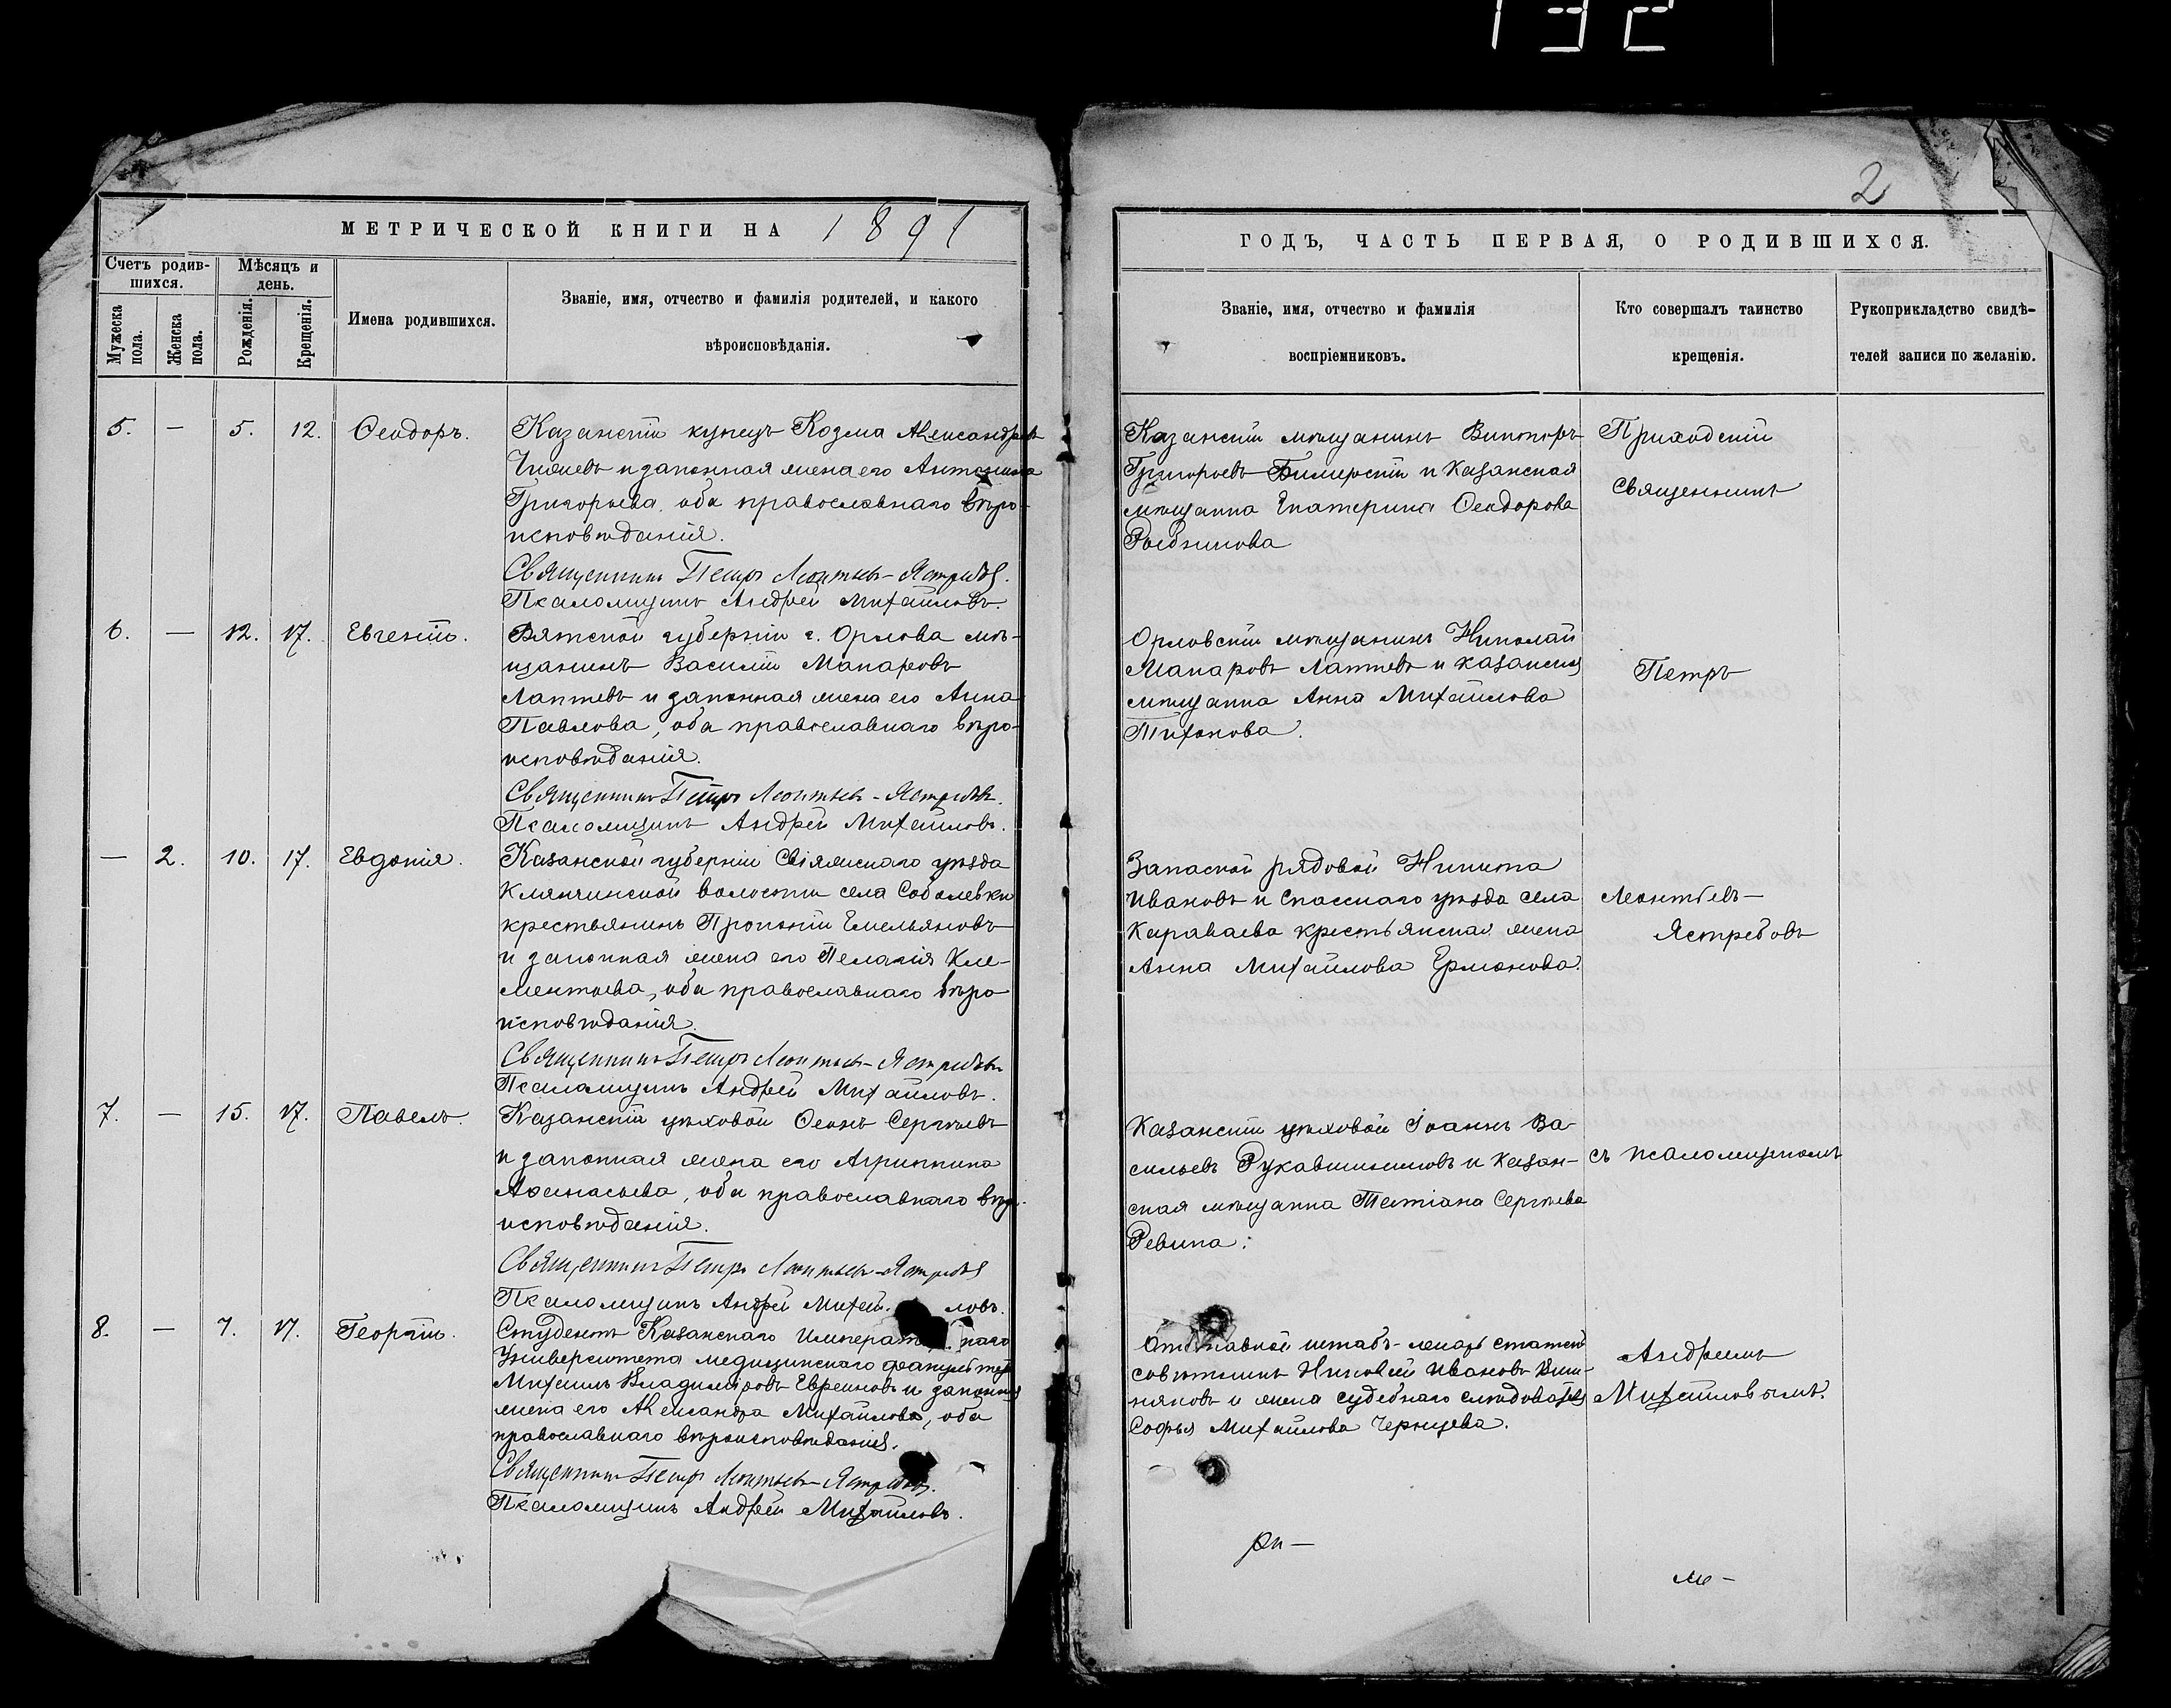 132
2
МЕТРИЧЕСКОЙ КНИГИ НА 1891
Счетъ родив-
шихся.
Мужеска пола.
Женска пола.
Мѣсяцъ и
день.
Рожденія.
Крещенія.
Имена родившихся.
Званіе, имя, отчество и фамилія родителей, и какого
вѣроисповѣданія.
5. — 5. 12. Ѳеодоръ.
Казанскій купецъ Козма Александровъ
и законная жена его Антонина
Григорьева, оба православнаго вѣро-
исповѣданія.
Священникъ Петръ Леонтьевъ-Ястребовъ.
Псаломщикъ Андрей Михайловъ.
6. — 12. 17. Евгеній.
Вятской губерніи г. Орлова мѣ-
щанинъ Василій Макаровъ
Лаптевъ и законная жена его Анна
Павлова, оба православнаго вѣро-
исповѣданія.
Священникъ Петръ Леонтьевъ-Ястребовъ.
Псаломщикъ Андрей Михайловъ.
— 2. 10. 17. Евдокія.
Казанской губерніи Свіяжскаго уѣзда
Клянчинской волости села Соболевки
крестьянинъ Прокопій Емельяновъ
и законная жена его Пелагія Кле-
ментьева, оба православнаго вѣро
исповѣданія.
Священникъ Петръ Леонтьевъ-Ястребовъ
Псаломщикъ Андрей Михайловъ.
7. — 15. 17. Павелъ.
Казанскій цѣховой Сергѣевъ
и законная жена его Агриппина
Аѳанасьева, оба православнаго вѣро-
исповѣданія.
Священникъ Петръ Леонтьевъ-Ястребовъ
Псаломщикъ Андрей Михай ловъ.
8. — 7. 17. Георгій.
Студентъ Казанскаго Императ скаго
Университета медицинскаго факультета
Михаилъ Владиміровъ Евреиновъ и законная
жена его Александра Михайлова, оба
православнаго вѣроисповѣданія.
Священникъ Петръ Леонтьевъ-Ястребовъ.
Псаломщикъ Андрей Михайловъ.
ГОДЪ, ЧАСТЬ ПЕРВАЯ, О РОДИВШИХСЯ.
Званіе, имя, отчество и фамилія
воспріемниковъ.
Кто совершалъ таинство
крещенія.
Рукоприкладство свидѣ-
телей записи по желанію.
Казанскій мѣщанинъ Викторъ
Григорьевъ и Казанская
мѣщанка Екатерина Ѳеодорова
Рыбникова
Орловскій мѣщанинъ Николай
Макаровъ Лаптевъ и казанская
мѣщанка Анна Михайлова
Тихонова.
Запасной рядовой Никита
Ивановъ и Спасскаго уѣзда села
Караваева крестьянская жена
Анна Михайлова Ермакова.
Казанскій цѣховой Іоаннъ Ва-
сильевъ Рукавишниковъ и казан-
ская мѣщанка Татіана Сергѣева
Ревина.
Отставной штабъ-лекарь статскій
совѣтникъ Николай Ивановъ
и жена судебнаго слѣдователя
Софья Михайлова Чернцева.
Приходскій
Священникъ
Петръ
Леонтьевъ—
Ястребовъ
съ псаломщикомъ
Андреемъ
Михайловымъ.
ри —
ме —